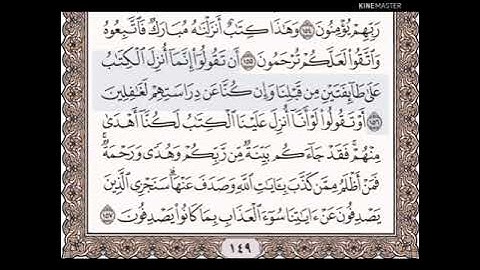 KINEMASTER
رَبِّهِمْ يُؤْمِنُونَ ١٥٤ وَهَٰذَا كِتَٰبٌ أَنزَلْنَٰهُ مُبَارَكٌ فَٱتَّبِعُوهُ
وَٱتَّقُوا۟ لَعَلَّكُمْ تُرْحَمُونَ ١٥٥ أَن تَقُولُوٓا۟ إِنَّمَآ أُنزِلَ ٱلْكِتَٰبُ
عَلَىٰ طَآئِفَتَيْنِ مِن قَبْلِنَا وَإِن كُنَّا عَن دِرَاسَتِهِمْ لَغَٰفِلِينَ
١٥٦ أَوْ تَقُولُوا۟ لَوْ أَنَّآ أُنزِلَ عَلَيْنَا ٱلْكِتَٰبُ لَكُنَّآ أَهْدَىٰ
مِنْهُمْ ۚ فَقَدْ جَآءَكُم بَيِّنَةٌ مِّن رَّبِّكُمْ وَهُدًى وَرَحْمَةٌ ۚ
فَمَنْ أَظْلَمُ مِمَّن كَذَّبَ بِـَٔايَٰتِ ٱللَّهِ وَصَدَفَ عَنْهَا ۗ سَنَجْزِى ٱلَّذِينَ
يَصْدِفُونَ عَنْ ءَايَٰتِنَا سُوٓءَ ٱلْعَذَابِ بِمَا كَانُوا۟ يَصْدِفُونَ ١٥٧
١٤٩